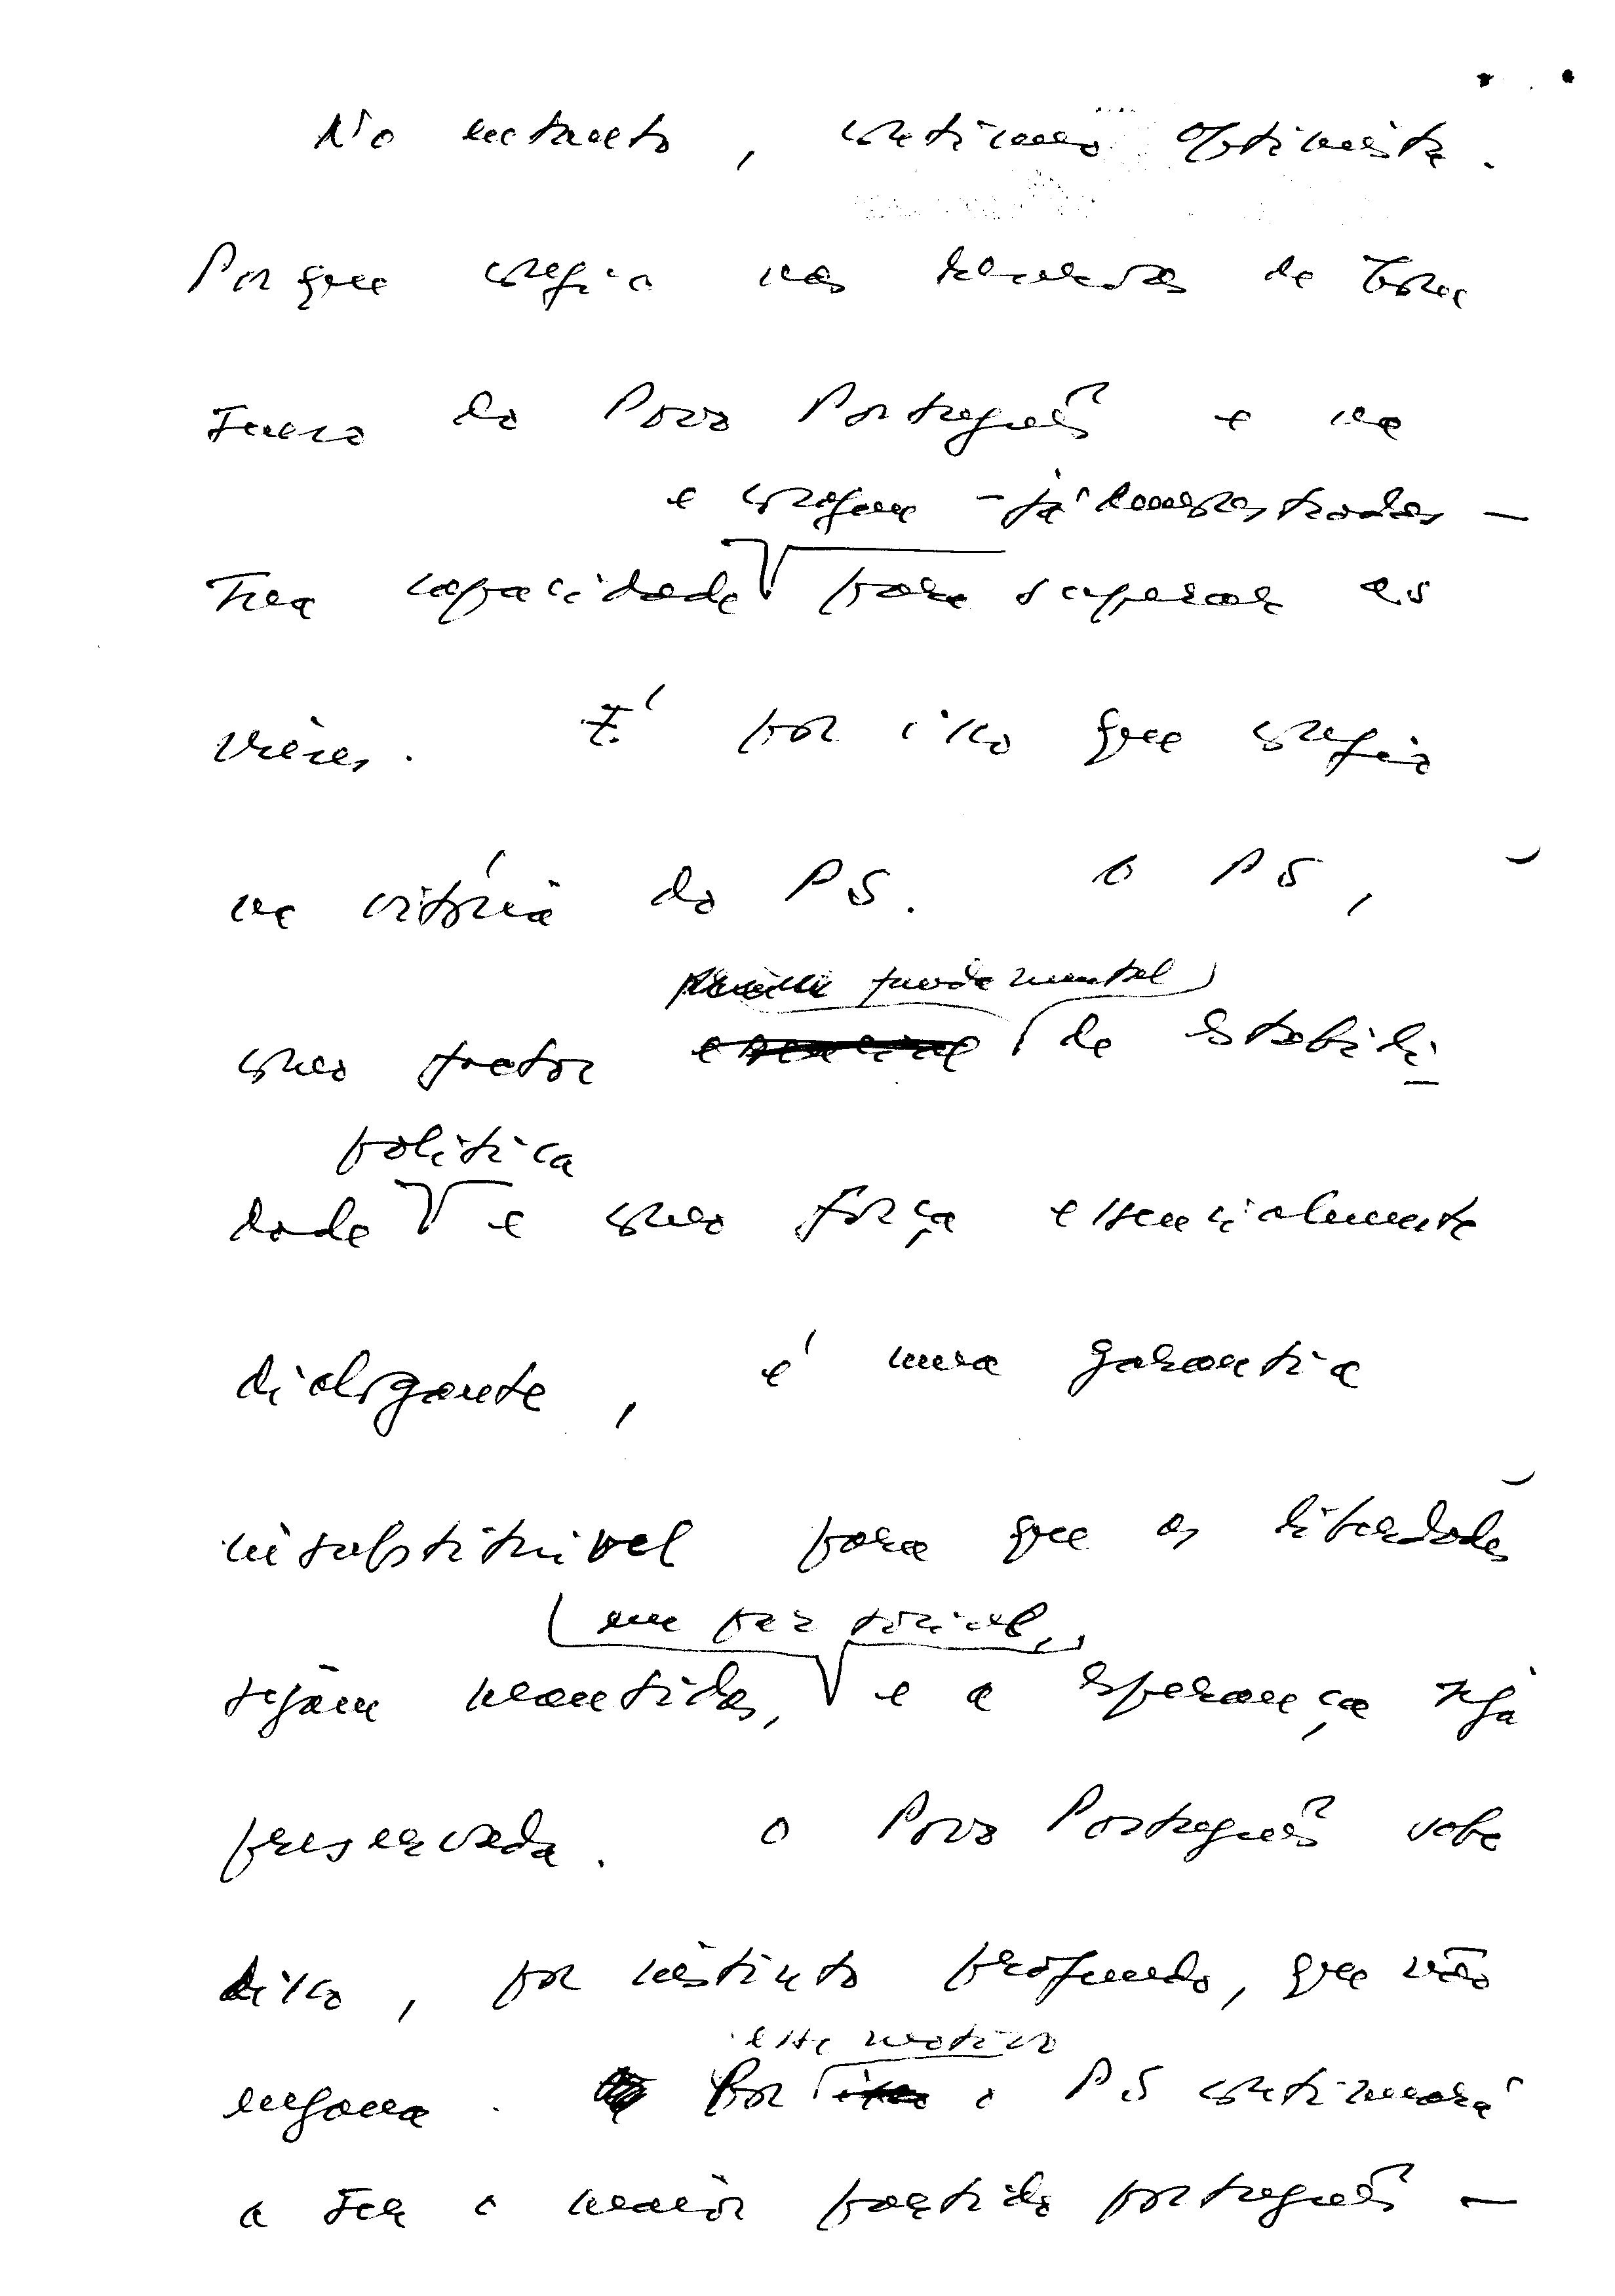 No entanto, continuo optimista.
Porque confio nas reservas de bom
senso do Povo Português e na
e coragem - já demonstradas -
sua capacidade para superar as
crises. É por isso que confio
na vitória do PS. O PS,
fundamental
como factor essencial de estabili-
política
dade e como força essencialmente
dialogante, é uma garantia
insubstituível para que as liberdades
em paz social,
sejam mantidas, e a esperança seja
preservada. O Povo Português sabe
disso, por instinto profundo, que não
esse motivo
engana. Por isso o PS continuará
a ser o maior partido português -